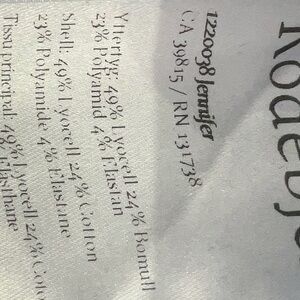 Rodebj
1222038 Jennifer
CA 39815 / RN 131738
Yttertyg: 49% Lyocell 24% Bomull
23% Polyamid 4% Elastan
Shell: 49% Lyocell 24% Cotton
23% Polyamide 4% Elastane
Tissu principal: 49% Lyocell 24%
Elasthane